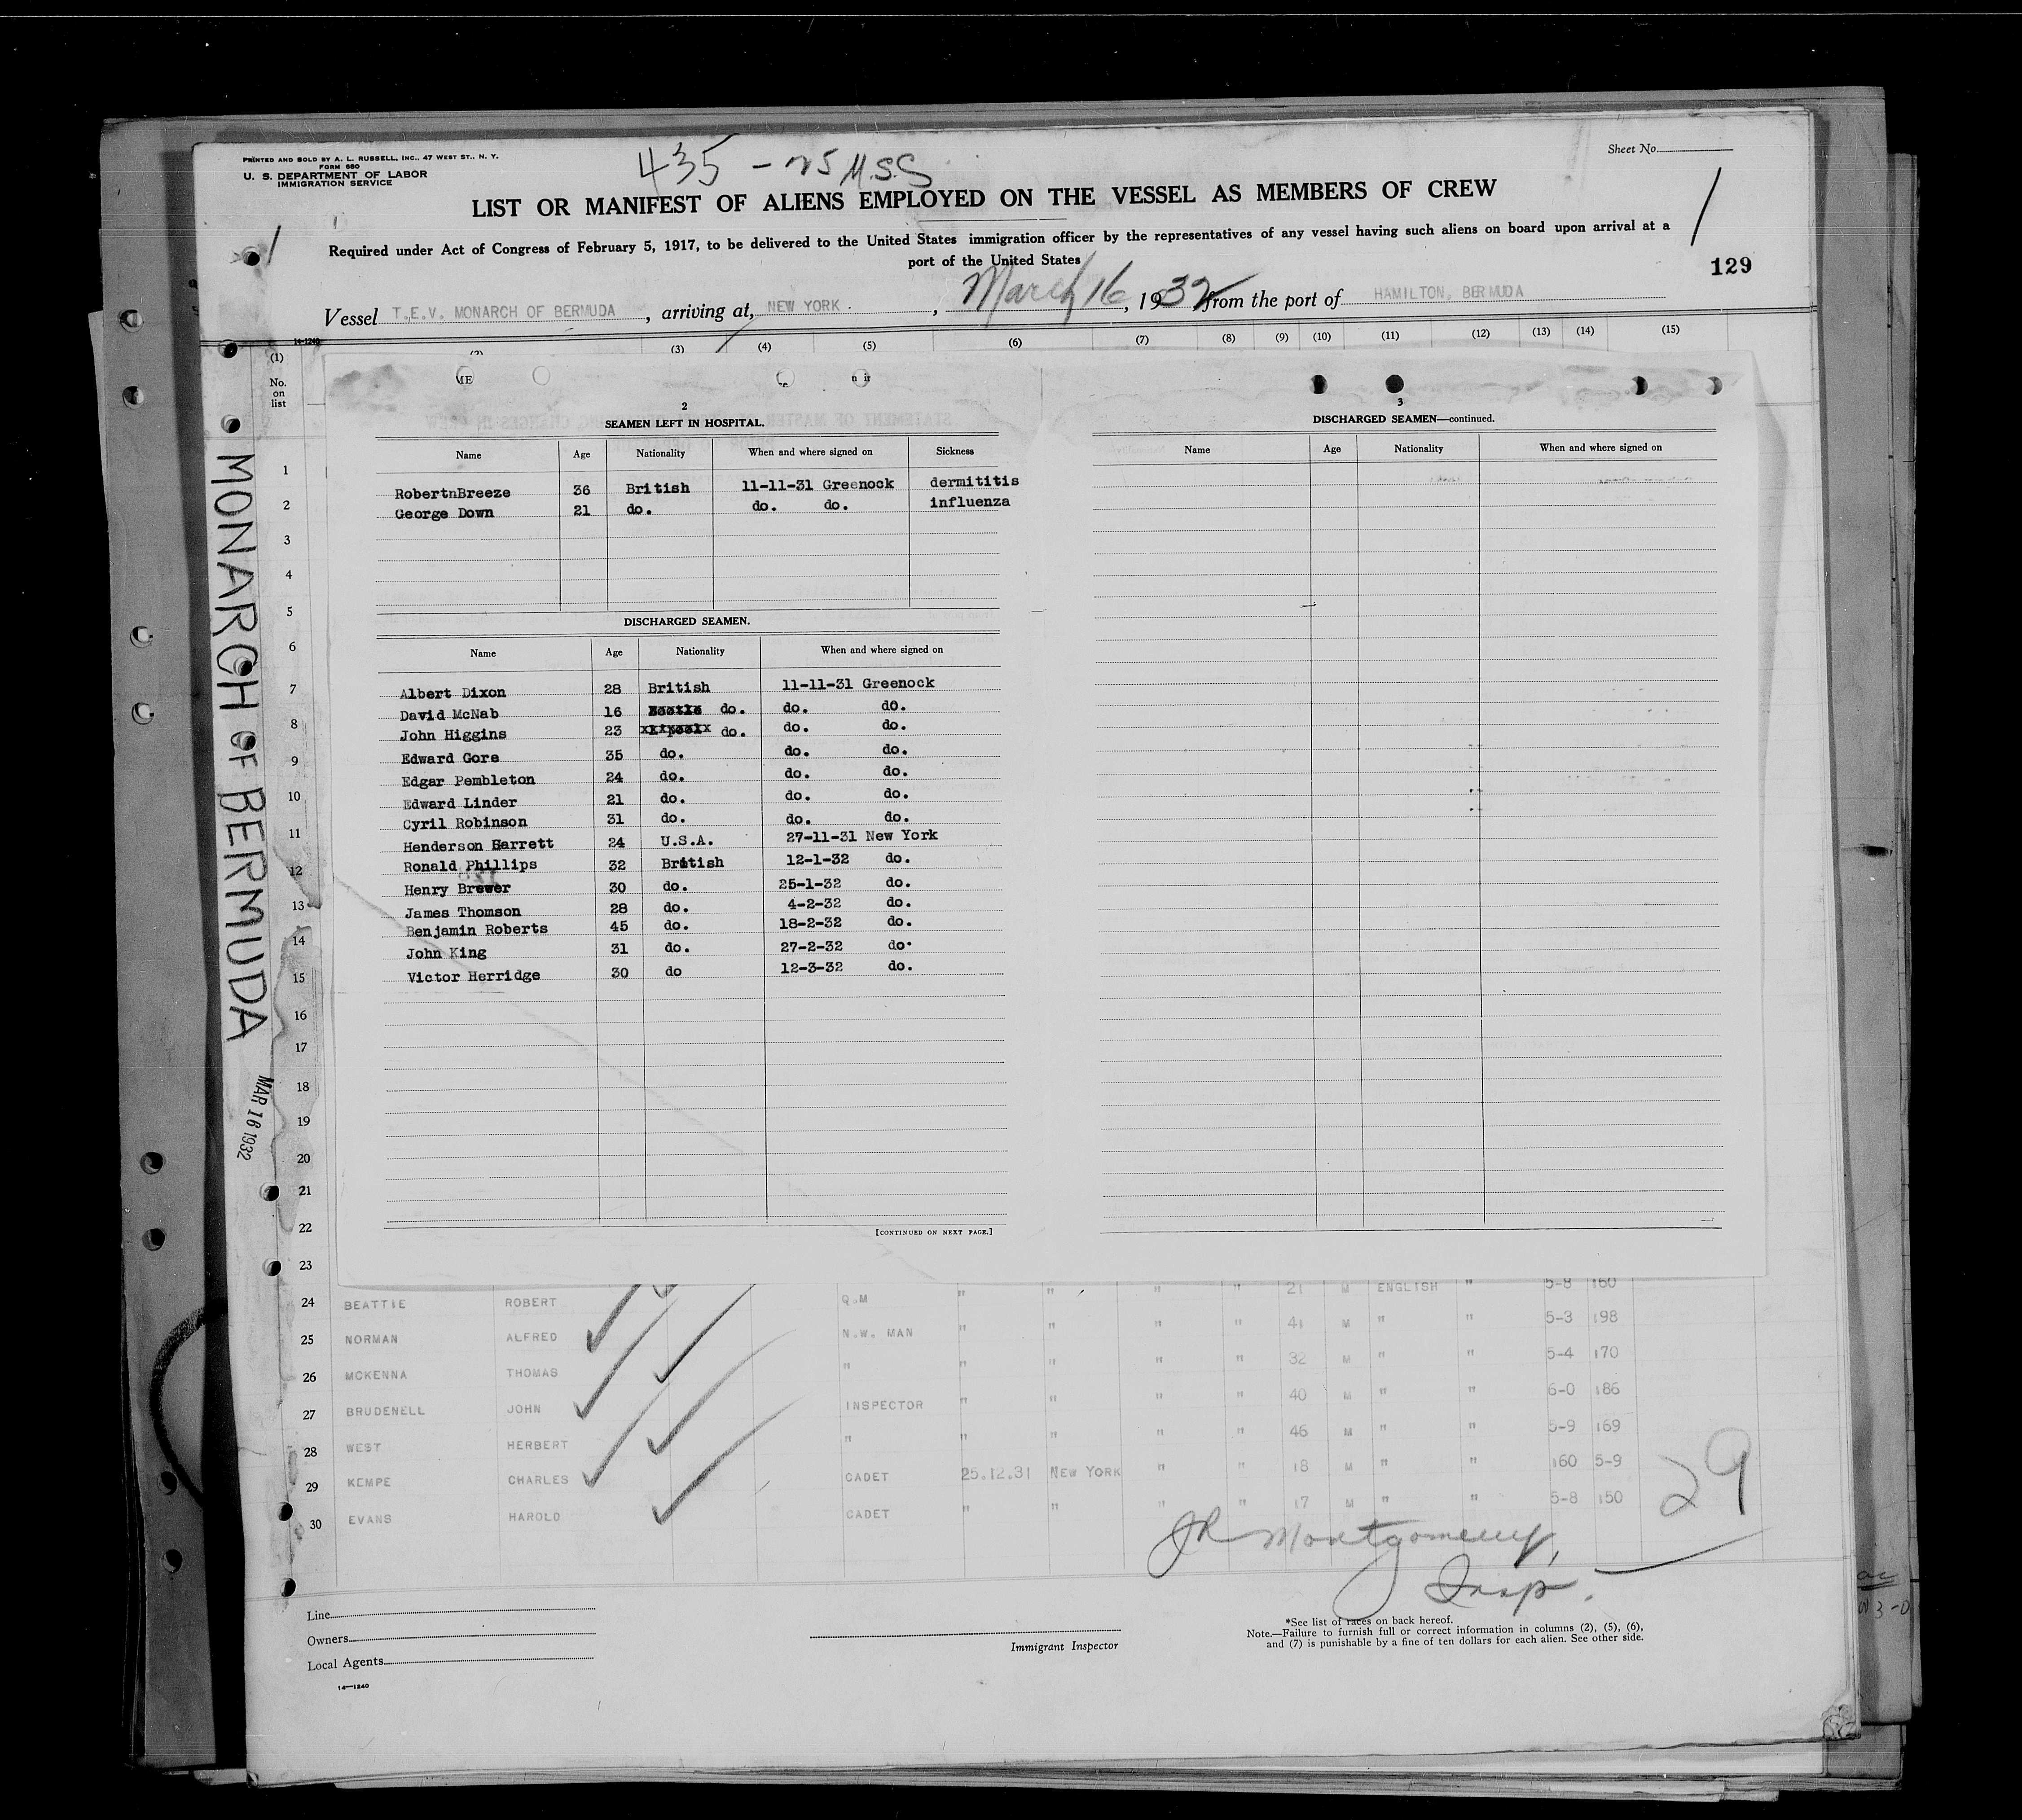 PRINTED AND SOLD BY A. L. RUSSELL, INC., 47 WEST ST., N. Y.
FORM 680
U. S. DEPARTMENT OF LABOR
IMMIGRATION SERVICE
435 - 25 M.S.S
Sheet No.
LIST OR MANIFEST OF ALIENS EMPLOYED ON THE VESSEL AS MEMBERS OF CREW
Required under Act of Congress of February 5, 1917, to be delivered to the United States immigration officer by the representatives of any vessel having such aliens on board upon arrival at a
port of the United States
129
Vessel T.E.V. MONARCH OF BERMUDA, arriving at, NEW YORK, March 16, 1932, from the port of HAMILTON, BERMUDA
14-1240
(1) (3) (4) (5) (6) (7) (8) (9) (10) (11) (12) (13) (14) (15)
No. on list
2
SEAMEN LEFT IN HOSPITAL.
Name Age Nationality When and where signed on Sickness
RobertnBreeze 36 British 11-11-31 Greenock dermititis
George Down 21 do. do. do. influenza
DISCHARGED SEAMEN.
Name Age Nationality When and where signed on
Albert Dixon 28 British 11-11-31 Greenock
David McNab 16 do. do. do.
John Higgins 23 do. do. do.
Edward Gore 35 do. do. do.
Edgar Pembleton 24 do. do. do.
Edward Linder 21 do. do. do.
Cyril Robinson 31 do. do. do.
Henderson Barrett 24 U.S.A. 27-11-31 New York
Ronald Phillips 32 British 12-1-32 do.
Henry Brewer 30 do. 25-1-32 do.
James Thomson 28 do. 4-2-32 do.
Benjamin Roberts 45 do. 18-2-32 do.
John King 31 do. 27-2-32 do.
Victor Herridge 30 do 12-3-32 do.
[CONTINUED ON NEXT PAGE.]
3
DISCHARGED SEAMEN—continued.
Name Age Nationality When and where signed on
1
2
3
4
5
6
7
8
9
10
11
12
13
14
15
16
17
18
19
20
21
22
23
21 M ENGLISH " 5-8 160
24 BEATTIE ROBERT Q.M " " " " 41 M " " 5-3 198
25 NORMAN ALFRED N.W. MAN " " " " 32 M " " 5-4 170
26 MCKENNA THOMAS " " " " " 40 M " " 6-0 186
27 BRUDENELL JOHN INSPECTOR " " " " 46 M " " 5-9 169
28 WEST HERBERT " " " " " 18 M " " 160 5-9
29 KEMPE CHARLES CADET 25.12.31 NEW YORK " " 17 M " " 5-8 150
30 EVANS HAROLD CADET " "
29
JR Montgomery,
Insp.
Line
Owners
Local Agents
14—1240
Immigrant Inspector
*See list of races on back hereof.
Note.—Failure to furnish full or correct information in columns (2), (5), (6),
and (7) is punishable by a fine of ten dollars for each alien. See other side.
MONARCH OF BERMUDA
MAR 16 1932